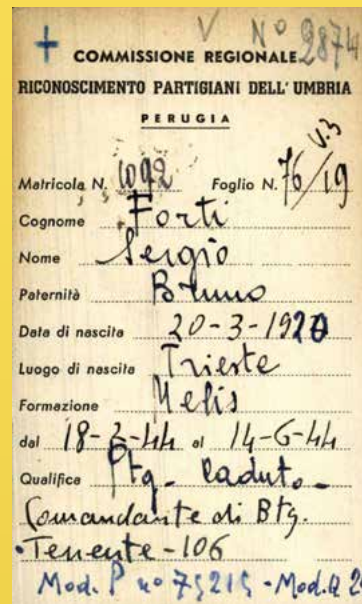 V N° 2874
+ COMMISSIONE REGIONALE
RICONOSCIMENTO PARTIGIANI DELL'UMBRIA
PERUGIA
V.3
Matricola N. 1092 Foglio N. 76/19
Cognome Forti
Nome Sergio
Paternità Bruno
Data di nascita 20-3-1920
Luogo di nascita Trieste
Formazione Melis
dal 18-2-44 al 14-6-44
Qualifica Ptg. Caduto -
Comandante di Btg.
Tenente - 106
Mod. P n° 75215 - Mod. Q